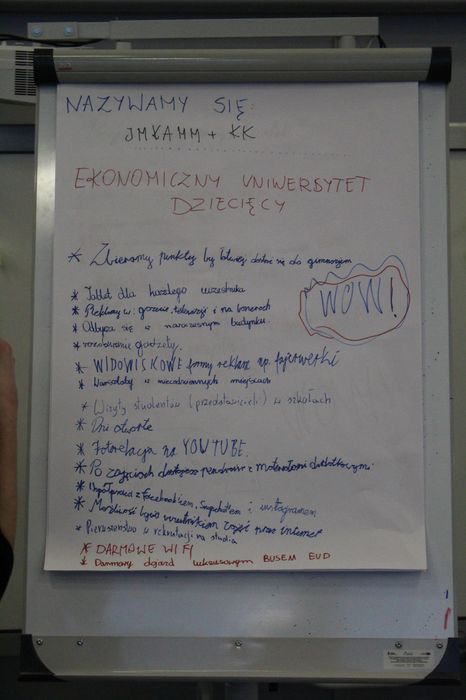 NAZYWAMY SIĘ:
JMŁAMM + ŁK
EKONOMICZNY UNIWERSYTET
DZIECIĘCY
* Zbieramy punkty by łatwiej dostać się do gimnazjum
WOW!
* Tablet dla każdego uczestnika
* Reklamy w: gazecie, telewizji i na banerach
* Odbywa się w nowoczesnym budynku.
* rozdawanie gadżety.
* WIDOWISKOWE formy reklam np. fajerwerki
* Warsztaty w niecodziennych miejscach
* Wizyty studentów (przedstawicieli) w szkołach
* Dni otwarte
* Fotorelacja na YOUTUBE.
* Po zajęciach dostajesz pendrive z materiałami dodatkowymi.
* Współpraca z facebookiem, Snapchatem i instagramem
* Możliwość bycia uczestnikiem zajęć przez internet
* Pierwszeństwo w rekrutacji na studia
* DARMOWE WIFI
* Darmowy dojazd luksusowym BUSEM EUD